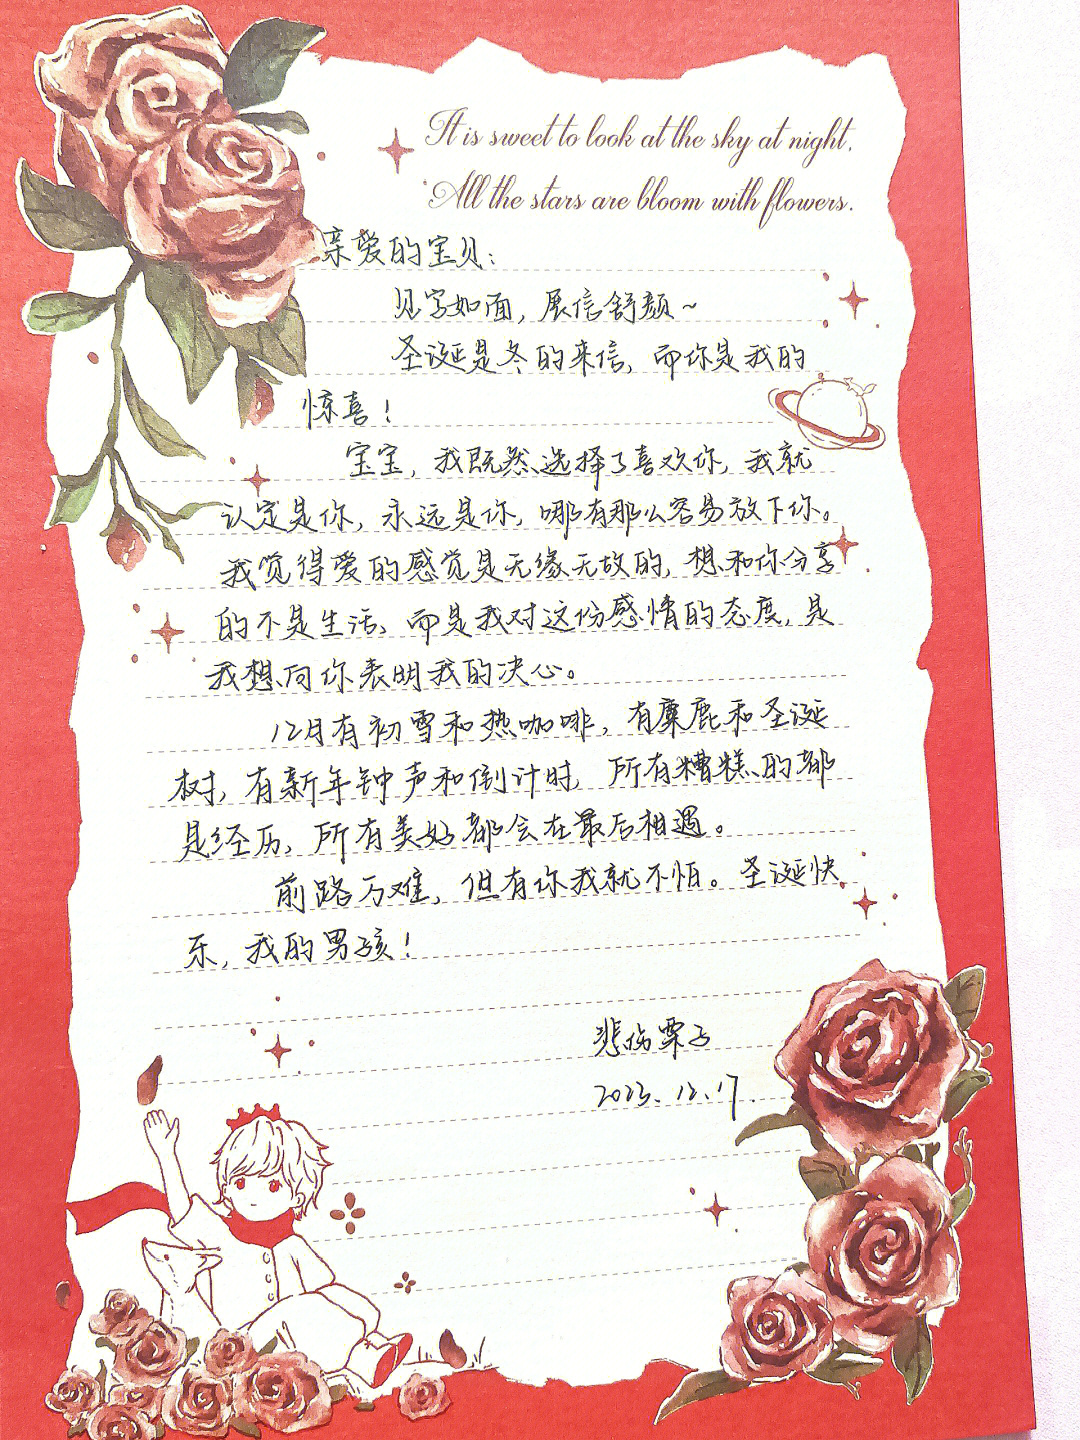 It is sweet to look at the sky at night.
All the stars are bloom with flowers.
亲爱的宝贝：
见字如面，展信舒颜~
圣诞是冬的来信，而你是我的
惊喜！
宝宝，我既然选择了喜欢你，我就
认定是你，永远是你，哪有那么容易放下你。
我觉得爱的感觉是无缘无故的，想和你分享
的不是生活，而是我对这份感情的态度，是
我想向你表明我的决心。
12月有初雪和热咖啡，有麋鹿和圣诞
树，有新年钟声和倒计时，所有糟糕的都
是经历，所有美好都会在最后相遇。
前路万难，但有你我就不怕。圣诞快
乐，我的男孩！
悲伤栗子
2023.12.17.